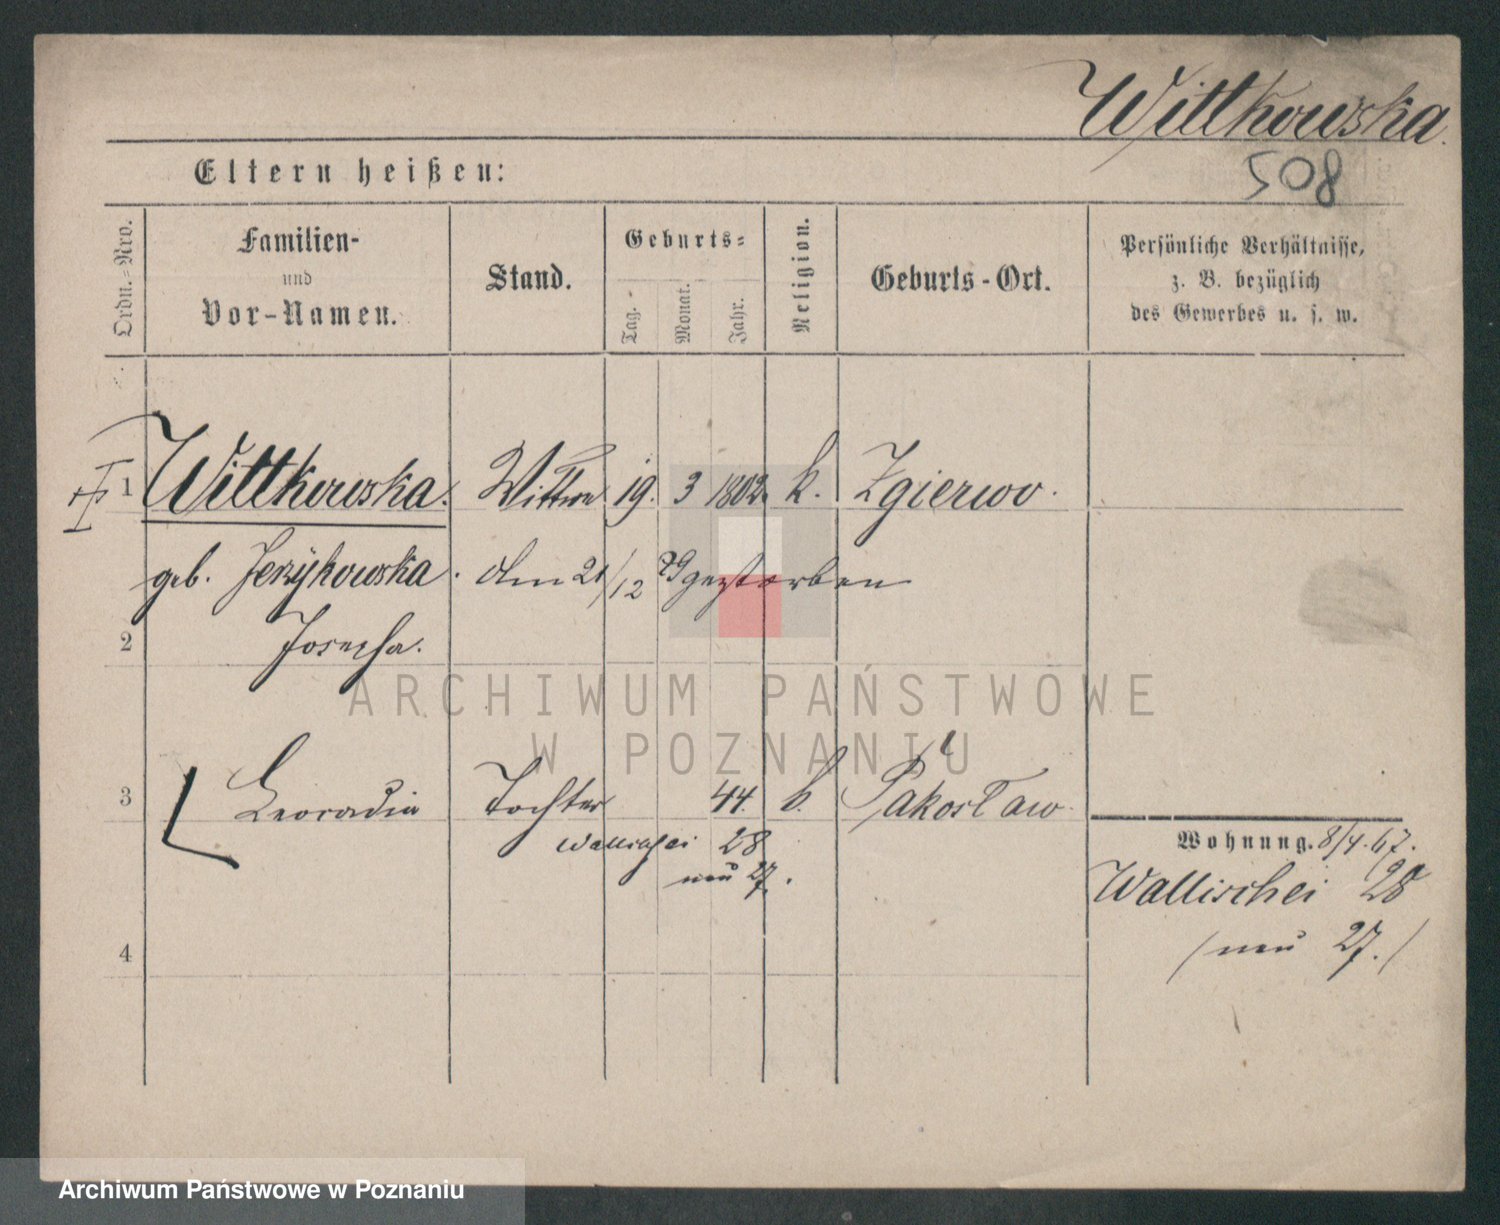 Wittkowska.
508
Eltern heißen:
Ordn.-Nro.
Familien-
und
Vor-Namen.
Stand.
Geburts-
Tag.
Monat.
Jahr.
Religion.
Geburts-Ort.
Persönliche Verhältnisse,
z. B. bezüglich
des Gewerbes u. s. w.
1 Wittkowska. Wittwe 19. 3 1802. k. Zgierwo.
geb. Jerzykowska. den 21/12 79 gestorben
2 Josepha.
ARCHIWUM PAŃSTWOWE
W POZNANIU
3 Leocadia Tochter 44. k. Pakosław.
Wallischei 28
neu 27.
Wohnung. 8/4. 67.
Wallischei 28
(neu 27.)
4
Archiwum Państwowe w Poznaniu